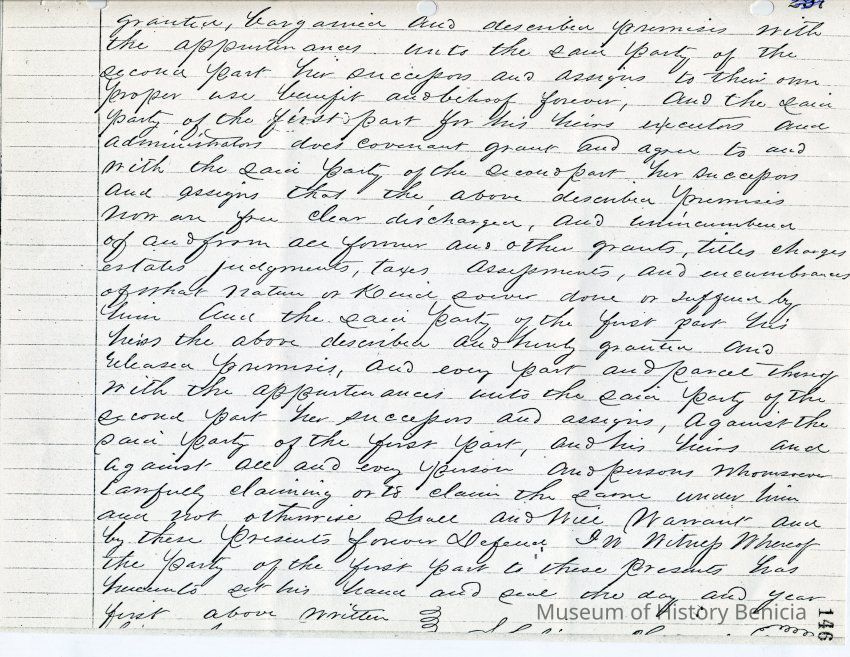 granted, bargained and described premises with
the appurtenances unto the said Party of the
second part her successors and assigns to their own
proper use benefit and behoof forever, And the said
Party of the first part for his heirs executors and
administrators does covenant grant and agree to and
with the said Party of the second part her successors
and assigns that the above described premises
now are free clear discharged, and unincumbered
of and from all former and other grants, titles charges
estates judgments, taxes Assessments, and encumbrances
of what nature or Kind soever done or suffered by
him And the said Party of the first part his
heirs the above described and hereby granted and
released premises, and every part and parcel thereof
with the appurtenances unto the said Party of the
second part her successors and assigns, against the
said Party of the first part, and his heirs and
against all and every person and persons whomsoever
lawfully claiming or to claim the same under him
and not otherwise shall and will Warrant and
by these Presents forever Defend. In Witness Whereof
the Party of the first part to these Presents has
hereunto set his hand and seal the day and year
first above written
Museum of History Benicia
146